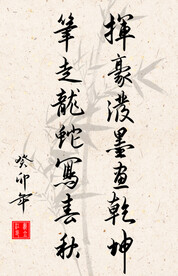 揮豪潑墨畫乾坤
筆走龍蛇寫春秋
癸卯年